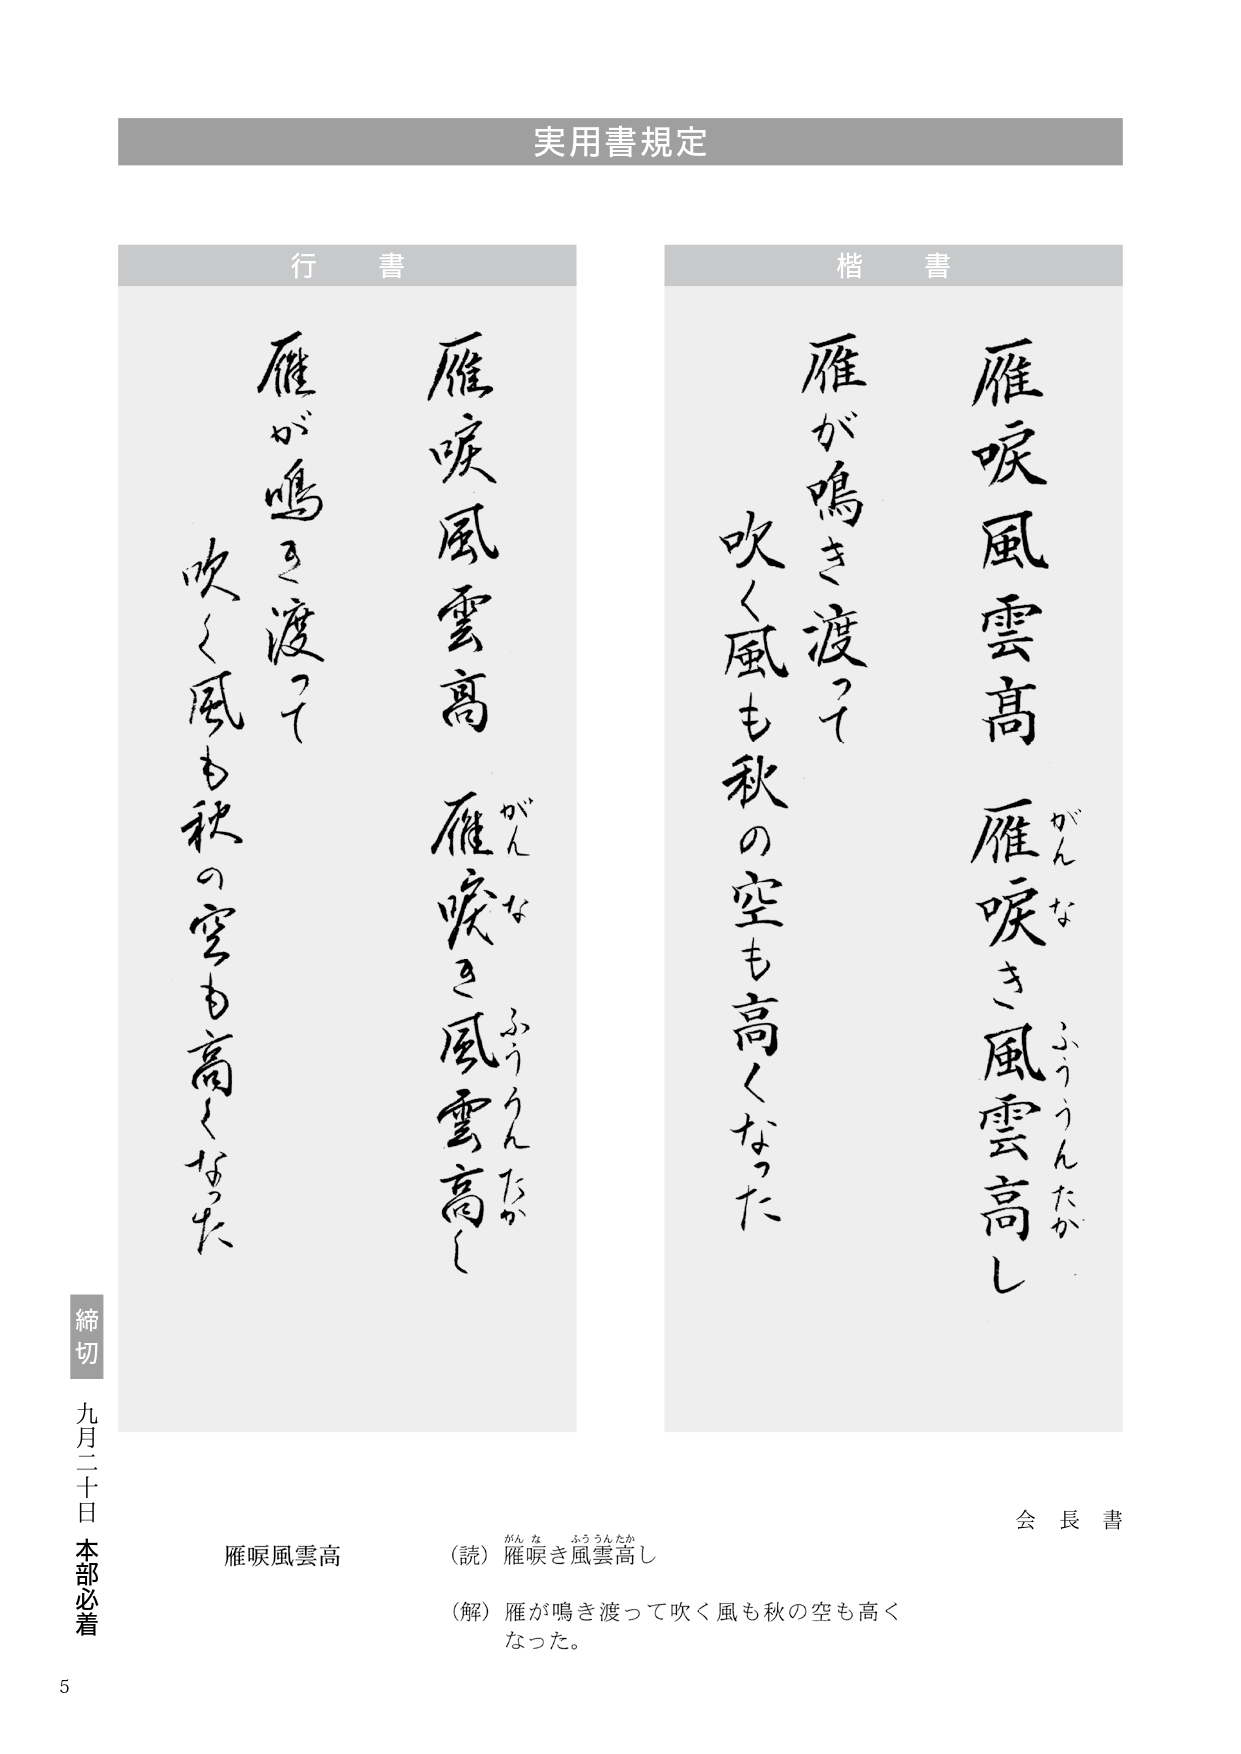 実用書規定
楷書
雁唳風雲高 雁唳き風雲高し
がん な ふううんたか
雁が鳴き渡って
吹く風も秋の空も高くなった
行書
雁唳風雲高 雁唳き風雲高し
がん な ふううんたか
雁が鳴き渡って
吹く風も秋の空も高くなった
締切 九月二十日 本部必着
会長書
雁唳風雲高
がん な ふううんたか
（読）雁唳き風雲高し
（解）雁が鳴き渡って吹く風も秋の空も高く
なった。
5